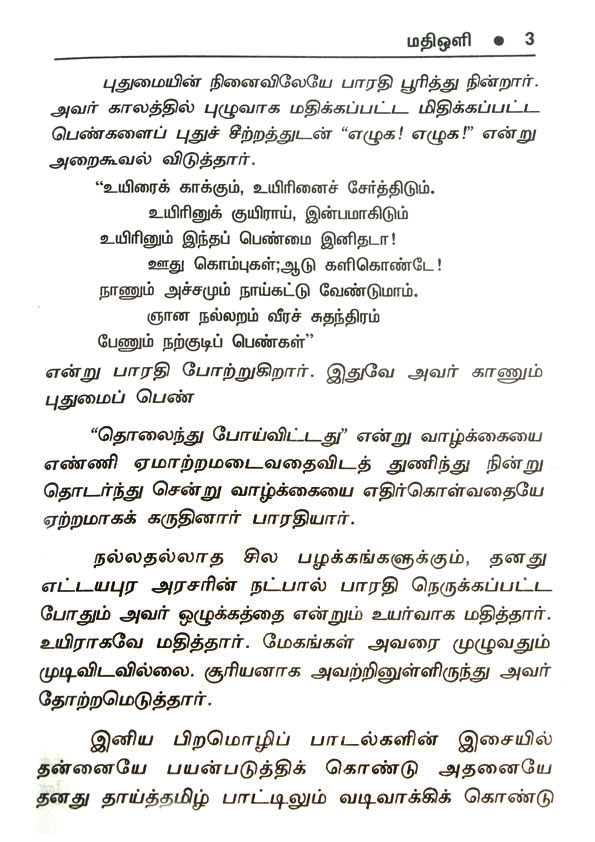 மதிஒளி ● 3
புதுமையின் நினைவிலேயே பாரதி பூரித்து நின்றார்.
அவர் காலத்தில் புழுவாக மதிக்கப்பட்ட மிதிக்கப்பட்ட
பெண்களைப் புதுச் சீற்றத்துடன் “எழுக! எழுக!” என்று
அறைகூவல் விடுத்தார்.
“உயிரைக் காக்கும், உயிரினைச் சேர்த்திடும்.
உயிரினுக் குயிராய், இன்பமாகிடும்
உயிரினும் இந்தப் பெண்மை இனிதடா!
ஊது கொம்புகள்;ஆடு களிகொண்டே!
நாணும் அச்சமும் நாய்கட்டு வேண்டுமாம்.
ஞான நல்லறம் வீரச் சுதந்திரம்
பேணும் நற்குடிப் பெண்கள்”
என்று பாரதி போற்றுகிறார். இதுவே அவர் காணும்
புதுமைப் பெண்
“தொலைந்து போய்விட்டது” என்று வாழ்க்கையை
எண்ணி ஏமாற்றமடைவதைவிடத் துணிந்து நின்று
தொடர்ந்து சென்று வாழ்க்கையை எதிர்கொள்வதையே
ஏற்றமாகக் கருதினார் பாரதியார்.
நல்லதல்லாத சில பழக்கங்களுக்கும், தனது
எட்டயபுர அரசரின் நட்பால் பாரதி நெருக்கப்பட்ட
போதும் அவர் ஒழுக்கத்தை என்றும் உயர்வாக மதித்தார்.
உயிராகவே மதித்தார். மேகங்கள் அவரை முழுவதும்
முடிவிடவில்லை. சூரியனாக அவற்றினுள்ளிருந்து அவர்
தோற்றமெடுத்தார்.
இனிய பிறமொழிப் பாடல்களின் இசையில்
தன்னையே பயன்படுத்திக் கொண்டு அதனையே
தனது தாய்த்தமிழ் பாட்டிலும் வடிவாக்கிக் கொண்டு